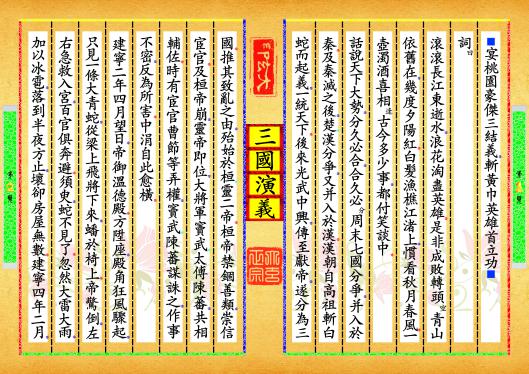 ■宴桃園豪傑三結義斬黃巾英雄首立功■
詞曰
滾滾長江東逝水浪花淘盡英雄是非成敗轉頭空青山
依舊在幾度夕陽紅白髮漁樵江渚上慣看秋月春風一
壺濁酒喜相逢古今多少事都付笑談中
話說天下大勢分久必合合久必分周末七國分爭并入於
秦及秦滅之後楚漢分爭又并入於漢漢朝自高祖斬白
蛇而起義一統天下後來光武中興傳至獻帝遂分為三
三國演義
國推其致亂之由殆始於桓靈二帝桓帝禁錮善類崇信
宦官及桓帝崩靈帝即位大將軍竇武太傅陳蕃共相
輔佐時有宦官曹節等弄權竇武陳蕃謀誅之作事
不密反為所害中涓自此愈橫
建寧二年四月望日帝御溫德殿方陞座殿角狂風驟起
只見一條大青蛇從梁上飛將下來蟠於椅上帝驚倒左
右急救入宮百官俱奔避須臾蛇不見了忽然大雷大雨
加以冰雹落到半夜方止壞卻房屋無數建寧四年二月